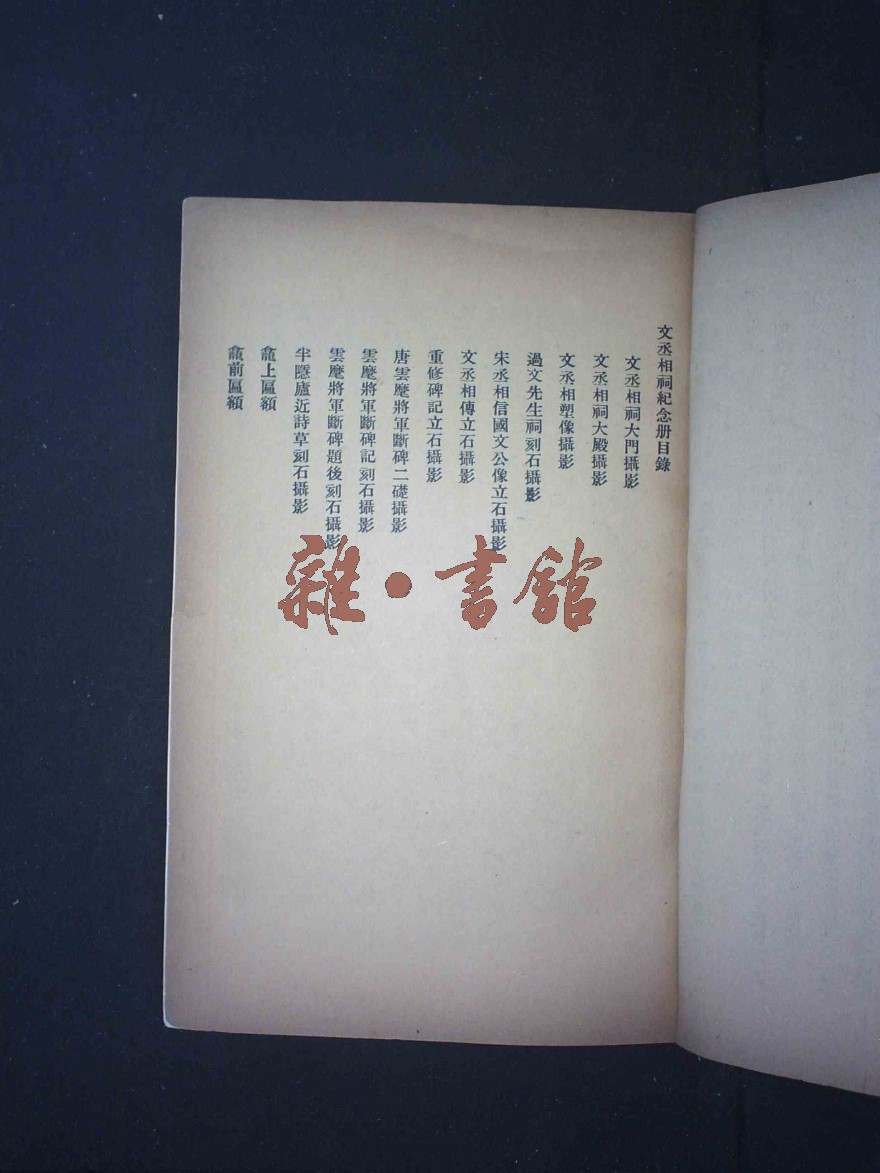 文丞相祠紀念册目錄
文丞相祠大門攝影
文丞相祠大殿攝影
文丞相塑像攝影
過文先生祠刻石攝影
宋丞相信國文公像立石攝影
文丞相傳立石攝影
重修碑記立石攝影
唐雲麾將軍斷碑二礎攝影
雲麾將軍斷碑記刻石攝影
雲麾將軍斷碑題後刻石攝影
半隱廬近詩草刻石攝影
龕上匾額
龕前匾額
雜·書館